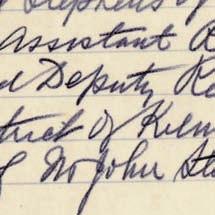 Stephens of
Assistant R
d Deputy Re
trict of Kilm
of No John St